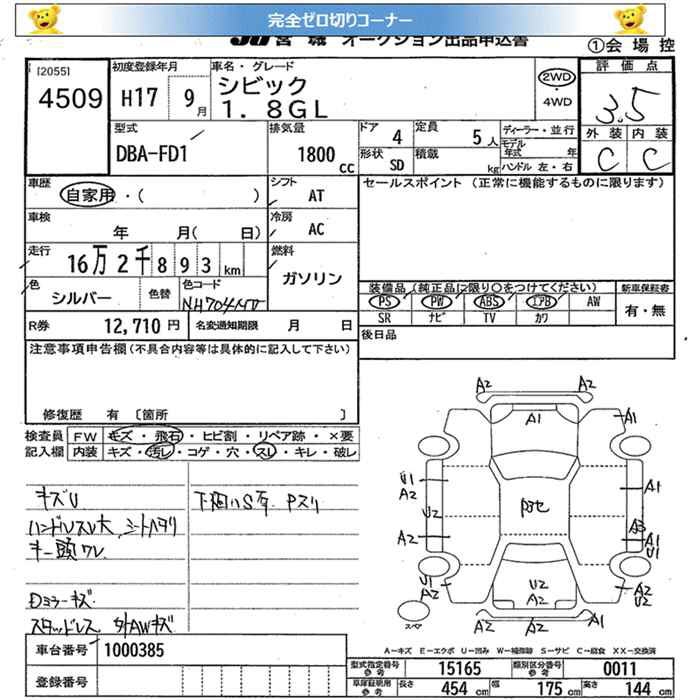 完全ゼロ切りコーナー
JU 宮城 オークション出品申込書
①会場控
[2055]
4509
初度登録年月
H17年 9月
車名・グレード
シビック
1.8GL
2WD
・
4WD
評価点
3.5
外装 内装
C C
型式
DBA-FD1
排気量
1800cc
ドア 4
定員 5人
形状 SD
積載 kg
ディーラー・並行
モデル年式 年
ハンドル 左・右
車歴
自家用・( )
シフト
AT
セールスポイント (正常に機能するものに限ります)
車検
年 月( 日)
冷房
AC
走行
16万2千893km
燃料
ガソリン
色
シルバー
色替
色コード
NH704M
装備品 (純正品に限り○をつけてください)
PS PW ABS エアB AW
SR ナビ TV カワ
新車保証書
有・無
R券 12,710円
名変通知期限 月 日
後日品
注意事項申告欄(不具合内容等は具体的に記入して下さい)
修復歴 有 〔箇所 〕
検査員記入欄
FW キズ・飛石・ヒビ割・リペア跡・×要
内装 キズ・汚レ・コゲ・穴・スレ・キレ・破レ
キズU
ハンドルスレ大 シートヘタリ
キー頭ワレ
Dミラーキズ
スタッドレス 外AWキズ
下廻りS有 Pスリ
A2 A2
A1 A1
U1
A2
U2
A2
A1
A3
A1
U1
U1
A2
U2
A2
A2
U2
A2 A2
スペア
A-キズ E-エクボ U-凹み W-補修跡 S-サビ C-腐食 XX-交換済
車台番号 1000385
登録番号
型式指定番号参考 15165
類別区分番号参考 0011
車庫証明用参考 長さ 454cm 幅 175cm 高さ 144cm